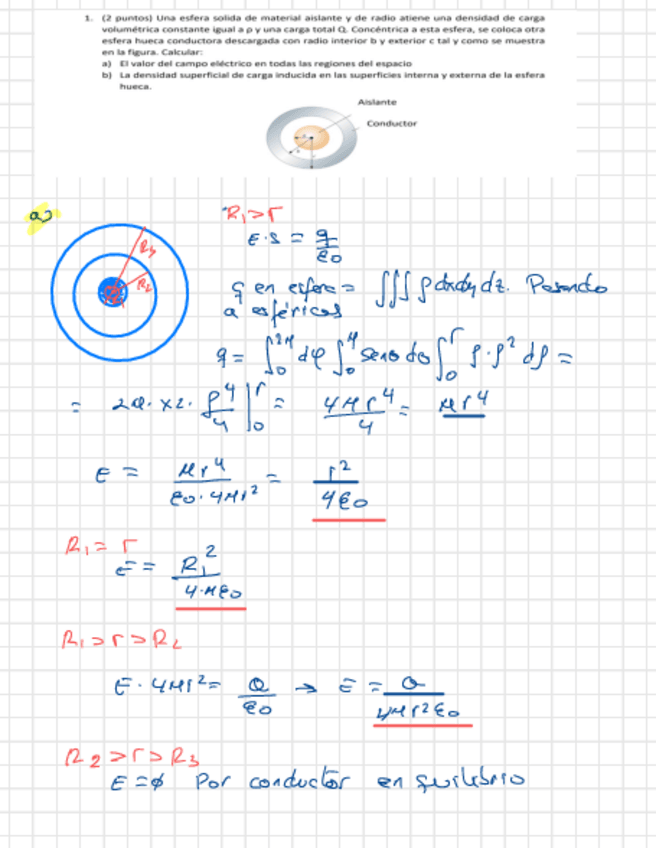 1. (2 puntos) Una esfera solida de material aislante y de radio atiene una densidad de carga
volumétrica constante igual a ρ y una carga total Q. Concéntrica a esta esfera, se coloca otra
esfera hueca conductora descargada con radio interior b y exterior c tal y como se muestra
en la figura. Calcular:
a) El valor del campo eléctrico en todas las regiones del espacio
b) La densidad superficial de carga inducida en las superficies interna y externa de la esfera
hueca.
Aislante
Conductor
a)
R₁>r
E·S = q/ε0
R3
R2
q en esfera = ∫∫∫ ρ dxdydz. Pasando
a esféricas
q = ∫₀^2π dφ ∫₀^π senθ dθ ∫₀^r ρ·ρ² dρ =
= 2π·x2· ρ⁴/4 |₀^r = 4πr⁴/4 = πr⁴
E = πr⁴/(ε0·4πr²) = r²/4ε0
R₁ = r
E = R₁²/4·πε0
R₁>r>R2
E·4πr² = Q/ε0 → E = Q/4πr²ε0
R2>r>R3
E=ϕ Por conductor en equilibrio